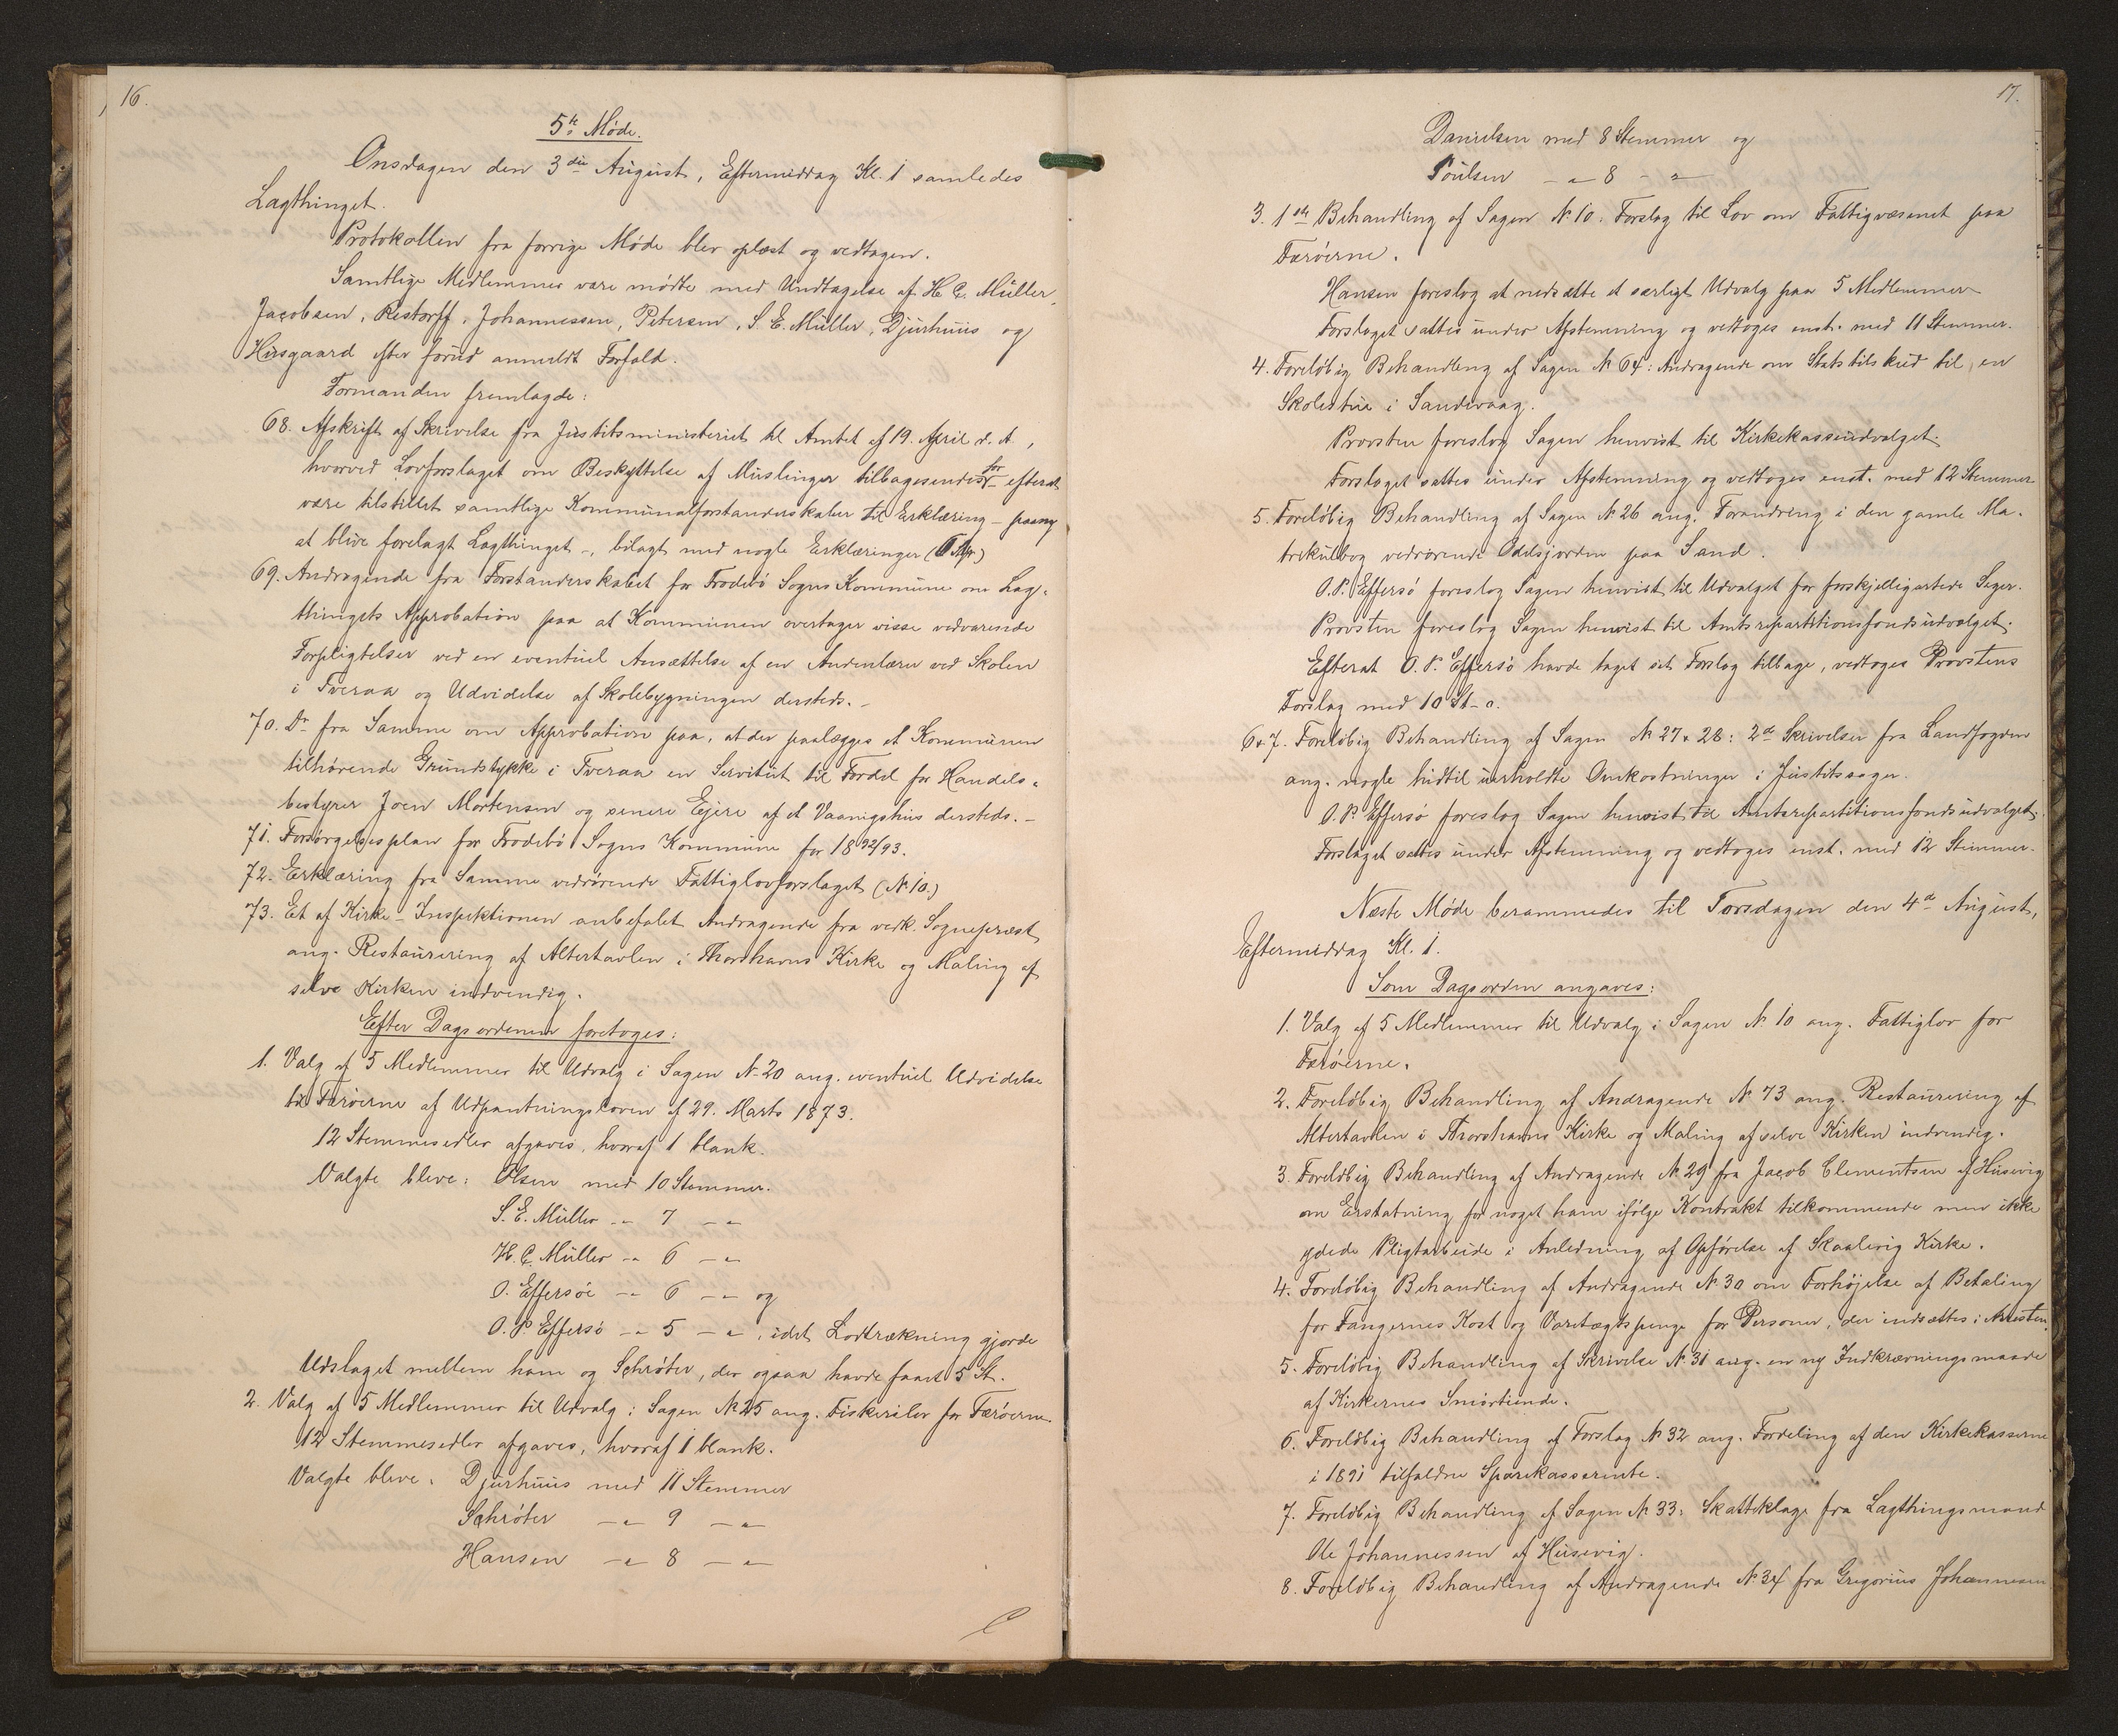 16.
5te Møde.
Onsdagen den 3die August, Eftermiddag Kl. 1 samledes
Lagthinget.
Protokollen fra forrige Møde blev oplæst og vedtagen.
Samtlige Medlemmer vare mødte med Undtagelse af H. C. Müller,
Jacobsen, Restorff, Johannessen, Petersen, S. E. Müller, Djurhuus og
Husgaard efter forud anmeldt Forfald.
Formanden fremlagde:
68. Afskrift af Skrivelse fra Justitsministeriet til Amtet af 19. April d. A.,
hvorved Lovforslaget om Beskyttelse af Muslinger tilbagesendes for – efterat
være tilstillet samtlige Kommunalforstanderskaber til Erklæring – paany
at blive forelagt Lagthinget –, bilagt med nogle Erklæringer
69. Andragende fra Forstanderskabet for Frodebø Sogns Kommune om Lag-
thingets Approbation paa at Kommunen overtager visse vedvarende
Forpligtelser ved en eventuel Ansættelse af en Andenlærer ved Skolen
i Tveraa og Udvidelse af Skolebygningen dersteds. –
70. Do fra Samme om Approbation paa, at der paalægges et Kommunen
tilhørende Grundstykke i Tveraa en Servitut til Fordel for Handels-
bestyrer Joen Mortensen og senere Ejere af et Vaaningshus dersteds. –
71. Forsørgelsesplan for Frodebø Sogns Kommune for 1892/93.
72. Erklæring fra Samme vedrørende Fattiglovforslaget (No 10.)
73. Et af Kirke-Inspektionen anbefalet Andragende fra vedk. Sognepræst
ang. Restaurering af Altertavlen i Thorshavns Kirke og Maling af
selve Kirken indvendig.
Efter Dagsordenen foretoges:
1. Valg af 5 Medlemmer til Udvalg i Sagen No 20 ang. eventuel Udvidelse
til Færøerne af Udpantningsloven af 29. Marts 1873.
12 Stemmesedler afgaves, hvoraf 1 blank.
Valgte bleve: Olsen med 10 Stemmer.
S. E. Müller -"- 7 -"-
H. C. Müller -"- 6 -"-
O. Effersøe -"- 6 -"- og
O. P. Effersø -"- 5 -"-, idet Lodtrækning gjorde
Udslaget mellem ham og Schrøter, der ogsaa havde faaet 5 St.
2. Valg af 5 Medlemmer til Udvalg i Sagen No 25 ang. Fiskerilov for Færøerne.
12 Stemmesedler afgaves, hvoraf 1 blank.
Valgte bleve: Djurhuus med 11 Stemmer
Schrøter -"- 9 -"-
Hansen -"- 8 -"-
17.
Danielsen med 8 Stemmer og
Poulsen -"- 8 -"-
3. 1ste Behandling af Sagen No 10. Forslag til Lov om Fattigvæsenet paa
Færøerne.
Hansen foreslog at nedsætte et særligt Udvalg paa 5 Medlemmer
Forslaget sattes under Afstemning og vedtoges enst. med 11 Stemmer.
4. Foreløbig Behandling af Sagen No 64: Andragende om Statstilskud til en
Skolestue i Sandevaag.
Provsten foreslog Sagen henvist til Kirkekasseudvalget.
Forslaget sattes under Afstemning og vedtoges enst. med 12 Stemmer
5. Foreløbig Behandling af Sagen No 26 ang. Forandring i den gamle Ma-
trikulbog vedrørende Odelsjorden paa Sand.
O. P. Effersø foreslog Sagen henvist til Udvalget for forskjelligartede Sager.
Provsten foreslog Sagen henvist til Amtsrepartitionsfondsudvalget.
Efterat O. P. Effersø havde taget sit Forslag tilbage, vedtoges Provstens
Forslag med 10 St – 0.
6 & 7. Foreløbig Behandling af Sagen No 27 & 28: 2de Skrivelser fra Landfogden
ang. nogle hidtil uerholdte Omkostninger i Justitssager.
O. P. Effersø foreslog Sagen henvist til Amtsrepartitionsfondsudvalget.
Forslaget sattes under Afstemning og vedtoges enst. med 12 Stemmer.
Næste Møde berammedes til Torsdagen den 4de August,
Eftermiddag Kl. 1.
Som Dagsorden angaves:
1. Valg af 5 Medlemmer til Udvalg i Sagen No 10 ang. Fattiglov for
Færøerne.
2. Foreløbig Behandling af Andragende No 73 ang. Restaurering af
Altertavlen i Thorshavns Kirke og Maling af selve Kirken indvendig.
3. Foreløbig Behandling af Andragende No 29 fra Jacob Clementsen af Husevig
om Erstatning for noget ham ifølge Kontrakt tilkommende men ikke
ydede Pligtarbeide i Anledning af Opførelse af Skaalevig Kirke.
4. Foreløbig Behandling af Andragende No 30 om Forhøjelse af Betaling
for Fangernes Kost og Varetægtspenge for Personer, der indsættes i Arresten.
5. Foreløbig Behandling af Skrivelse No 31 ang. en ny Indkrævningsmaade
af Kirkernes Smørtiende.
6. Foreløbig Behandling af Forslag No 32 ang. Fordeling af den Kirkekasserne
i 1891 tilfaldne Sparekasserente.
7. Foreløbig Behandling af Sagen No 33: Skatteklage fra Lagthingsmand
Ole Johannessen af Husevig.
8. Foreløbig Behandling af Andragende No 34 fra Gregorius Johannesen